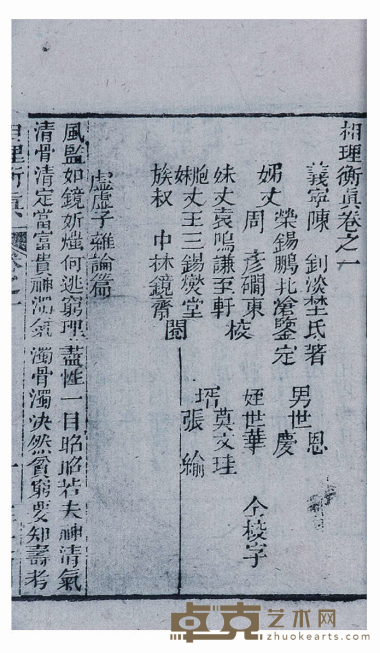 相理衡真卷之一
義寧陳 釗淡埜氏著
榮錫鵬北滄鑒定
姊丈 周 彥礀東
妹丈袁鳴謙至軒 校
胞妹丈王三錫爕堂
族叔 中林鏡齋 閱
男世恩
慶
姪世華
壻莫文珪
張綸
仝校字
虛虛子雜論篇
風監如鏡妍媸何逃窮理盡性一目昭昭若夫神清氣
清骨清定當富貴神濁氣濁骨濁決然貧窮要知壽考
相理衡真
卷之一
卓克艺术网
zhuokearts.com